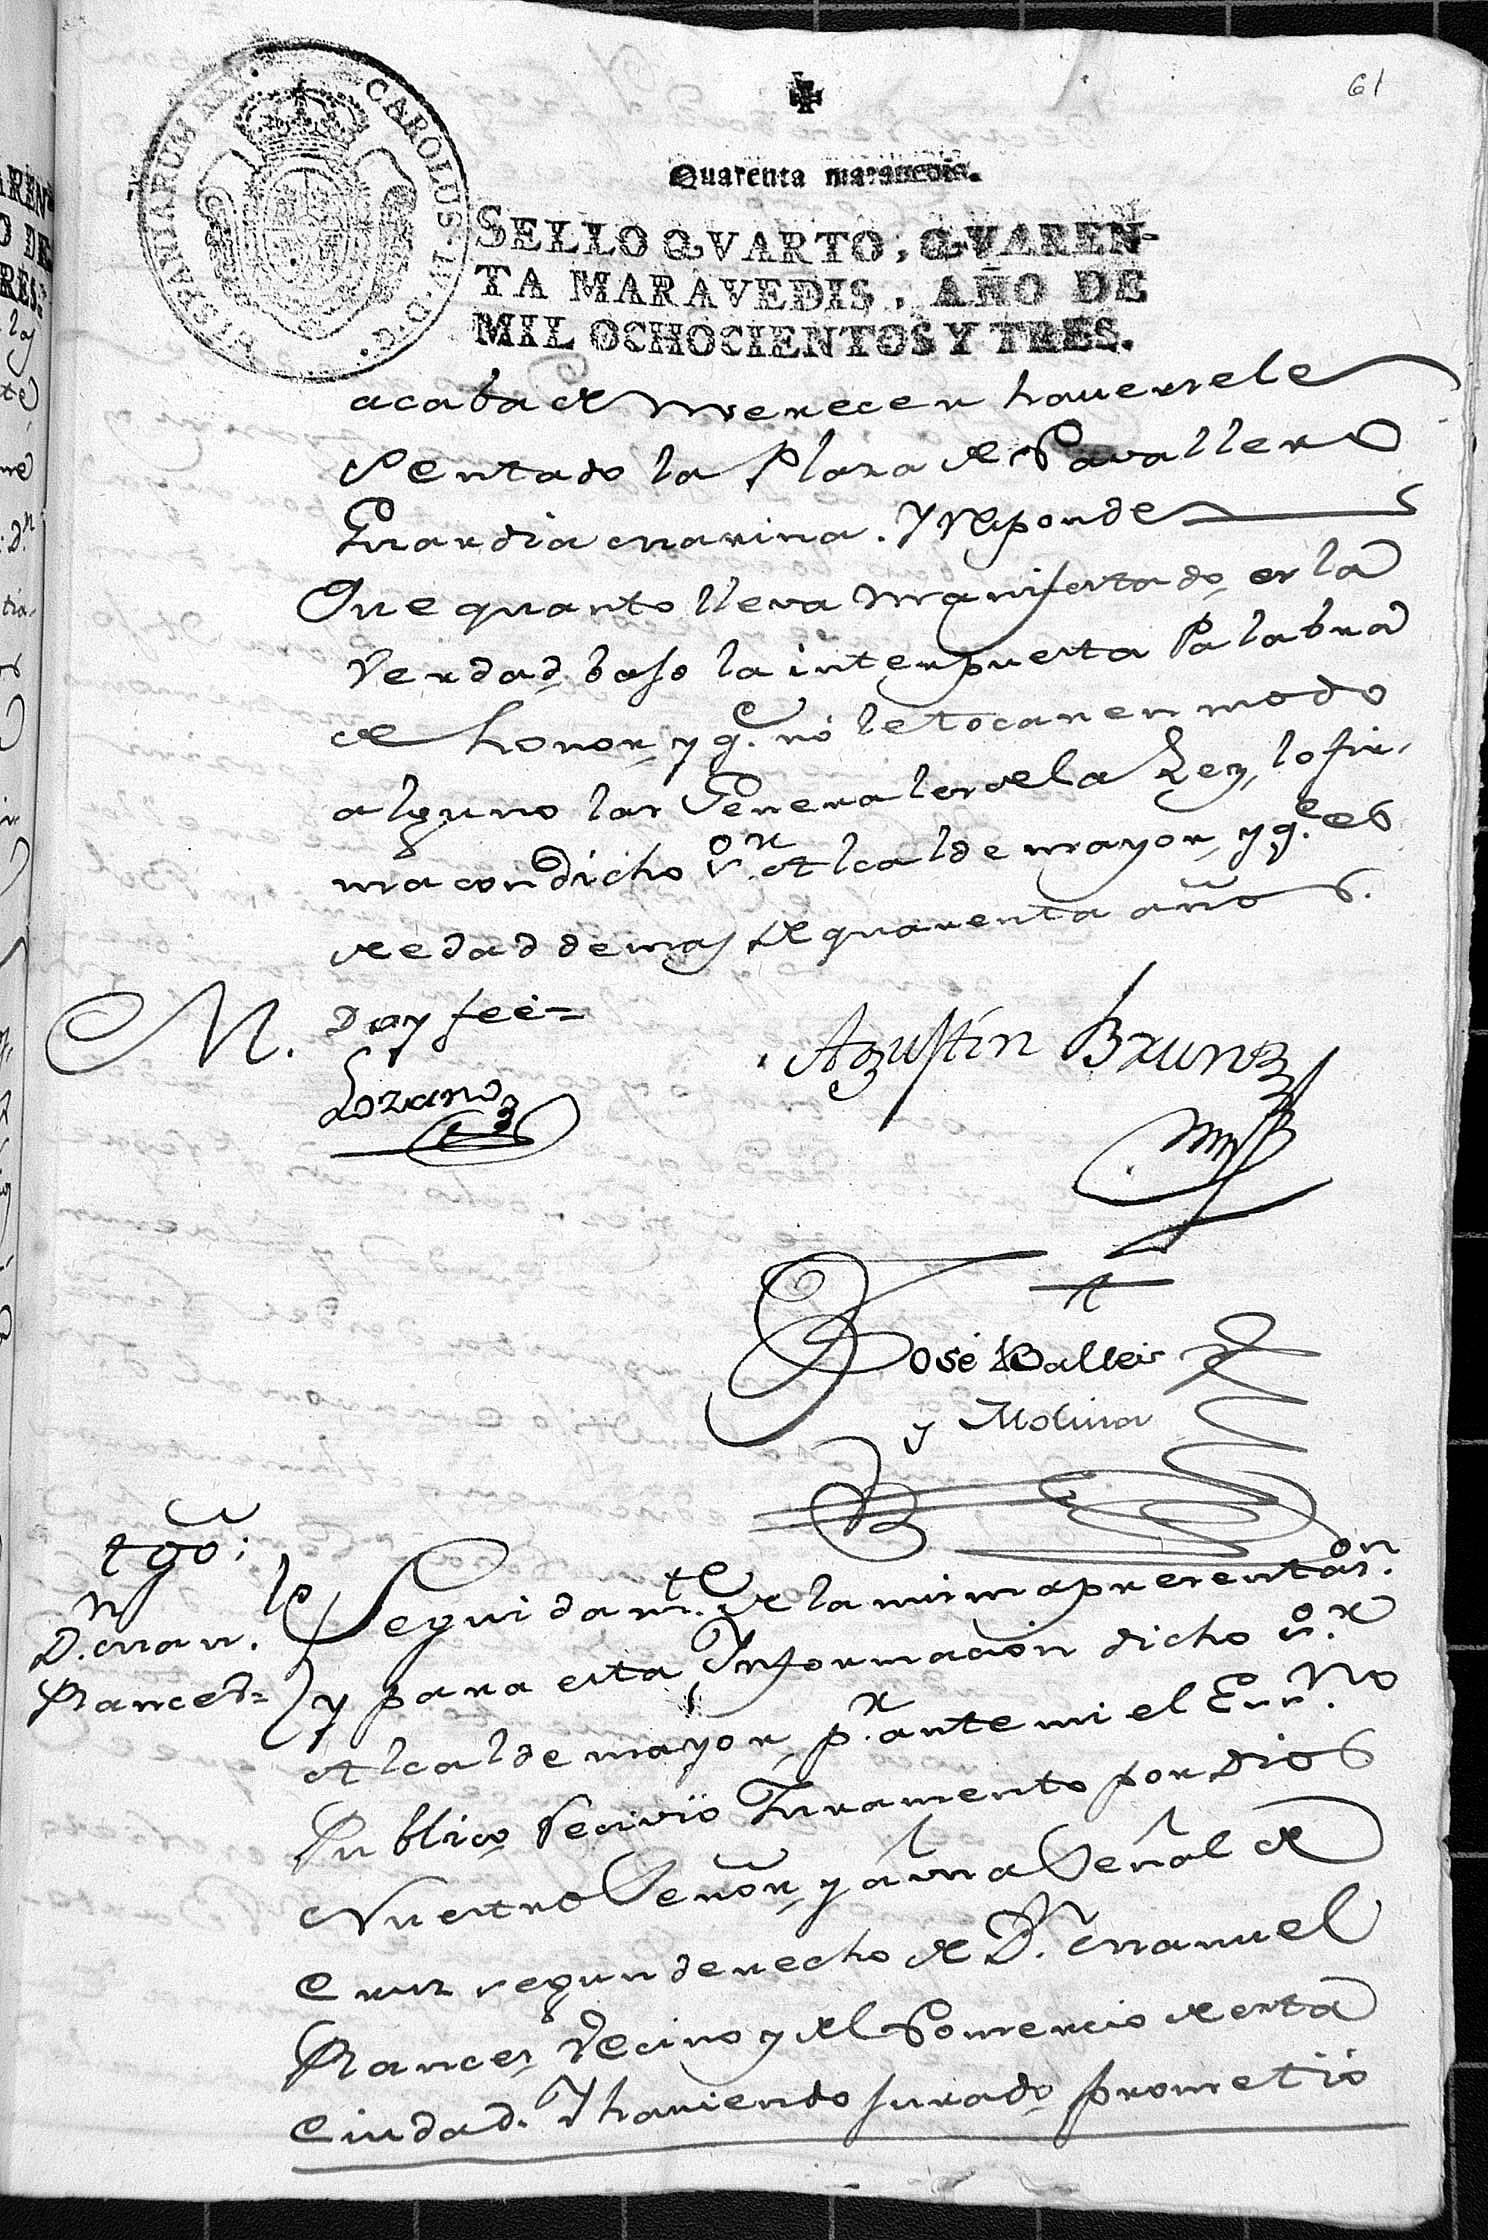 61
HISPANIARUM REX. CAROLUS. IV. D. G.
Quarenta maravedis.
SELLO QVARTO, QVAREN-
TA MARAVEDIS, AÑO DE
MIL OCHOCIENTOS Y TRES.
acaba de merecer haversele
Sentado la Plaza de Cavallero
Guardia marina. Y responde
Que quanto lleva manifestado es la
Verdad, baxo la interpuesta Palabra
de honor, y q.e no le tocan en modo
alguno las Generales de la Ley, lo fir-
ma con dicho S.or Alcalde mayor, y q.e es
de edad de mas de quarenta años.
Doy fee=
M.
Lozano
Agustin Bruno
José Balles
y Molina
tgo:
D.n Man.l
Rances=
Seguidam.te de la misma presentaz.on
y para esta Informacion dicho S.or
Alcalde mayor, p.r ante mi el Essn.no
Publico, recivió Juramento por Dios
Nuestro Señor, y á una Señal de
Cruz segun derecho de D.n Manuel
Rances, Vecino y del Comercio de esta
Ciudad. Y haviendo jurado, prometió